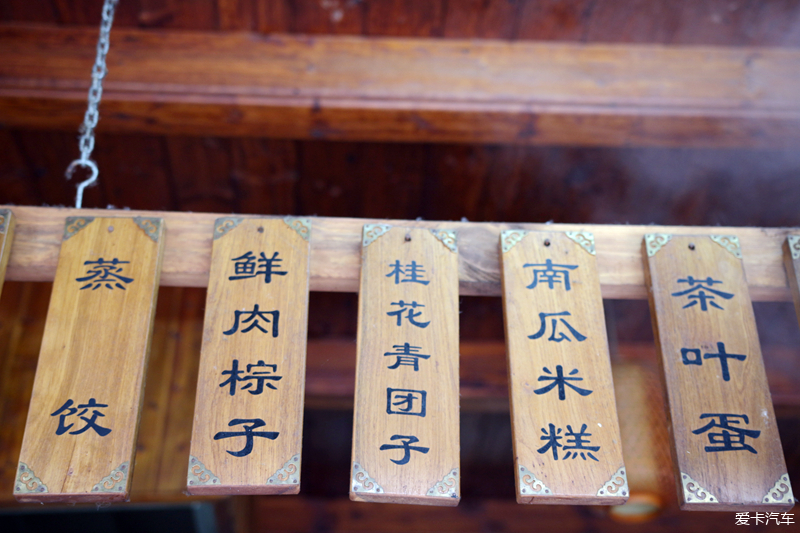 蒸饺
鲜肉粽子
桂花青团子
南瓜米糕
茶叶蛋
爱卡汽车